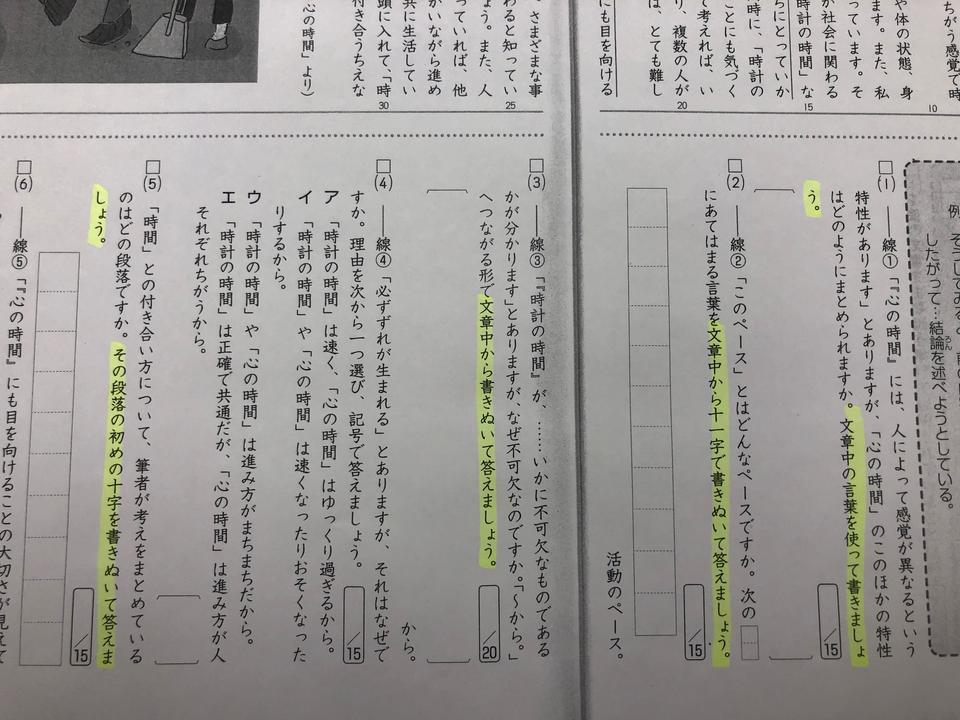 ちがう感覚で時
や体の状態、身
ます。また、私
っています。そ
が社会に関わる
時計の時間」な
らにとっていか
時に、「時計の
ことにも気づく
て考えれば、い
り、複数の人が
は、とても難し
にも目を向ける
10
15
20
さまざまな事
わると知ってい
ょう。また、人
っていれば、他
かいながら進め
共に生活してい
頭に入れて、「時
付き合うちえな
心の時間」より)
25
30
したがって…結論を述べようとしている。
ろん
(1) ――線①「『心の時間』には、人によって感覚が異なるという
特性があります」とありますが、「心の時間」のこのほかの特性
はどのようにまとめられますか。文章中の言葉を使って書きましょ
う。
/15
(2) ――線②「このペース」とはどんなペースですか。次の
にあてはまる言葉を文章中から十一字で書きぬいて答えましょう。
/15
活動のペース。
(3) ――線③「『時計の時間』が、……いかに不可欠なものである
かが分かります」とありますが、なぜ不可欠なのですか。「〜から。」
へつながる形で文章中から書きぬいて答えましょう。
/20
から。
(4) ――線④「必ずずれが生まれる」とありますが、それはなぜで
すか。理由を次から一つ選び、記号で答えましょう。
/15
ア 「時計の時間」は速く、「心の時間」はゆっくり過ぎるから。
イ 「時計の時間」や「心の時間」は速くなったりおそくなった
りするから。
ウ 「時計の時間」や「心の時間」は進み方がまちまちだから。
エ 「時計の時間」は正確で共通だが、「心の時間」は進み方が人
それぞれちがうから。
(5) 「時間」との付き合い方について、筆者が考えをまとめている
のはどの段落ですか。その段落の初めの十字を書きぬいて答えま
しょう。
/15
(6) ――線⑤「『心の時間』にも目を向けることの大切さが見えて